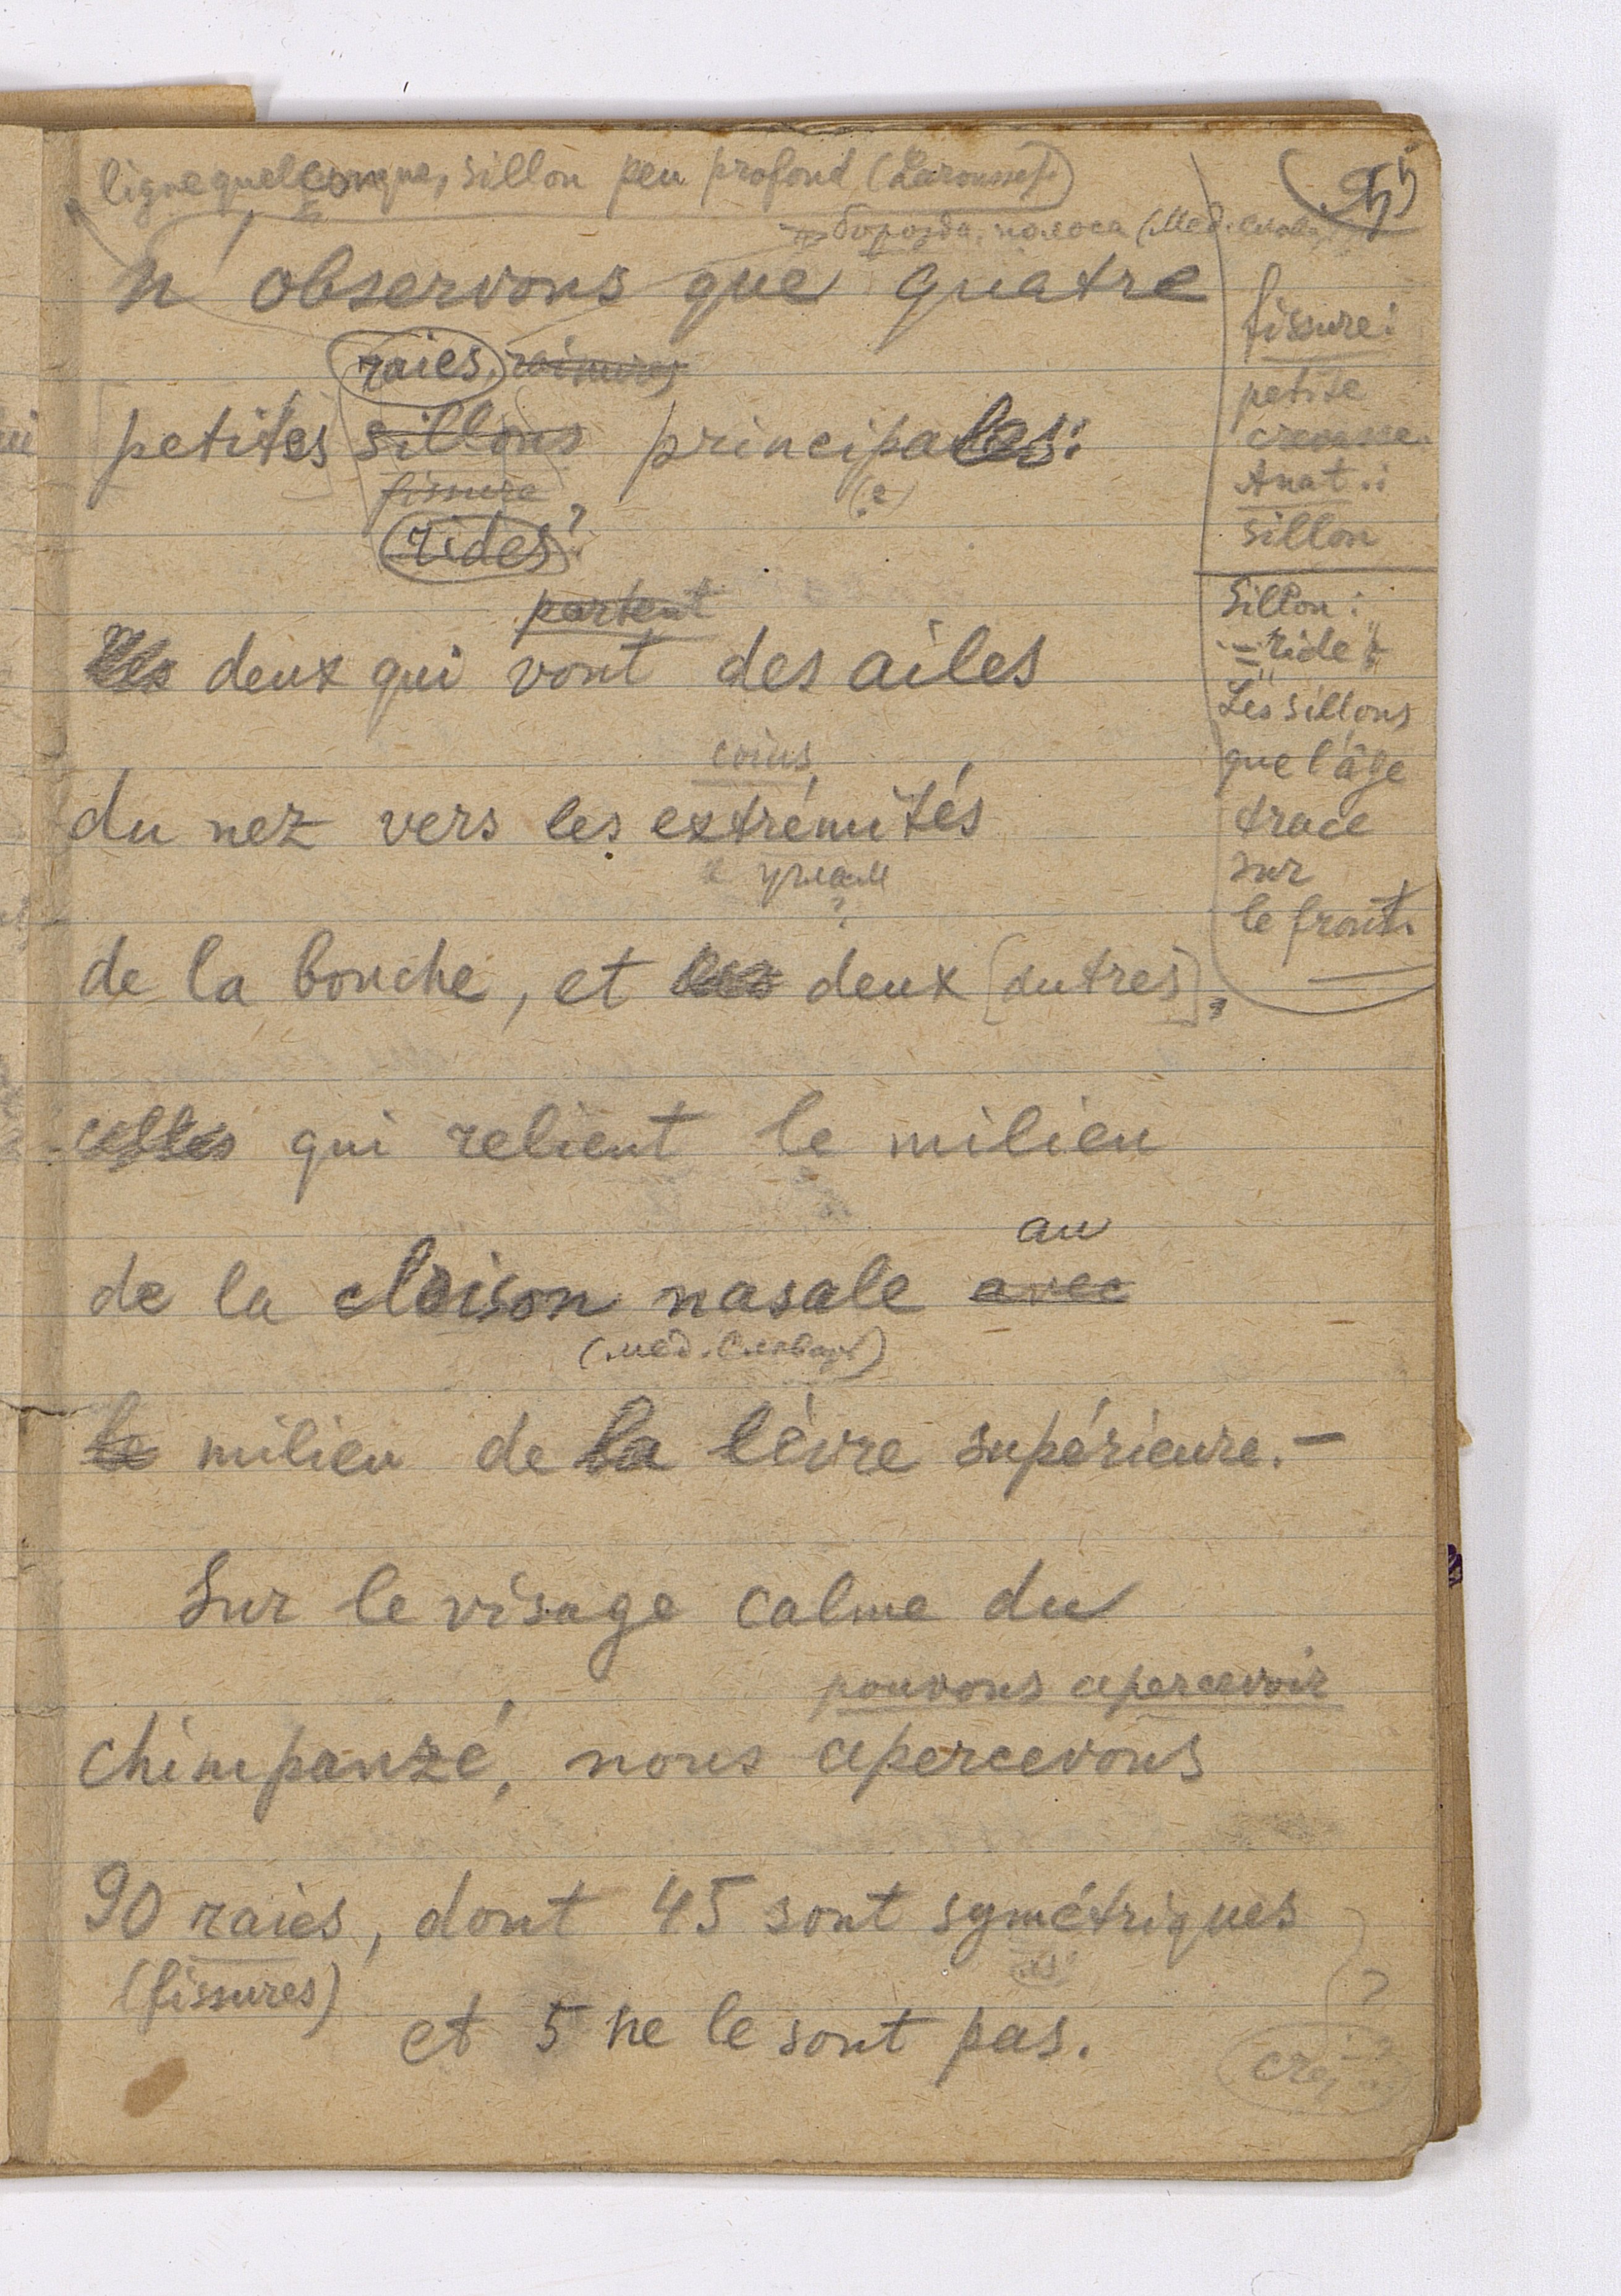 ligne quelconque, sillon peu profond (Larousse)
борозда, полоса (Мед. словарь)
n'observons que quatre
raies, rainures
petites sillons principales:
fissure (e)
rides?
partent
les deux qui vont des ailes
coins
du nez vers les extrémités
к углам
?
de la bouche, et les deux [autres],
celles qui relient le milieu
au
de la cloison nasale avec
(мед. словарь)
le milieu de la lèvre supérieure. —
Sur le visage calme du
pouvons apercevoir
chimpanzé, nous apercevons
90 raies, dont 45 sont symétriques
(fissures)
et 5 ne le sont pas.
?
fissure:
petite
crevasse.
Anat.:
sillon
Sillon:
= ride:
"Les sillons
que l'âge
trace
sur
le front.